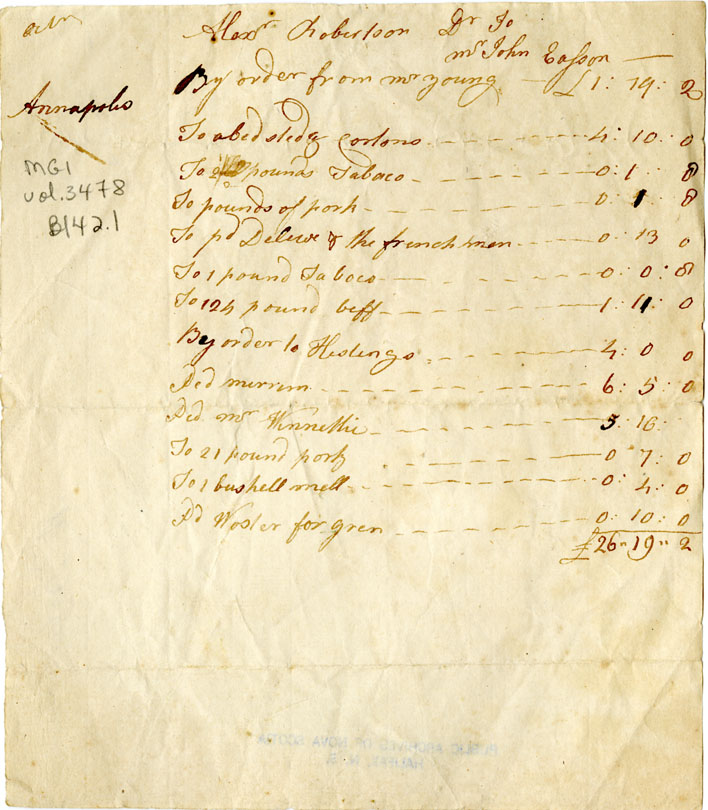 Alexr Robertson Dr To
mr John Easson —
By order from mr young — £1: 19: 2
Annapolis
MG1
vol.3478
B142.1
To abedsted & Cortons 4: 10: 0
To pounds Tabaco 0: 1 8
To pounds of pork 0: 1 8
To pd & the frenchmen 0: 13 0
To 1 pound Tabaco 0: 0: 8
To 124 pound beff 1: 11: 0
By order to Hestings 4: 0 0
Ped merrem 6: 5: 0
Ped mr Winnettie 5: 16:
To 21 pound pork 0: 7: 0
To 1 bushell mell 0: 4: 0
Pd Woster for gren 0: 10: 0
£26" 19" 2
PUBLIC ARCHIVES OF NOVA SCOTIA
HALIFAX, N. S.